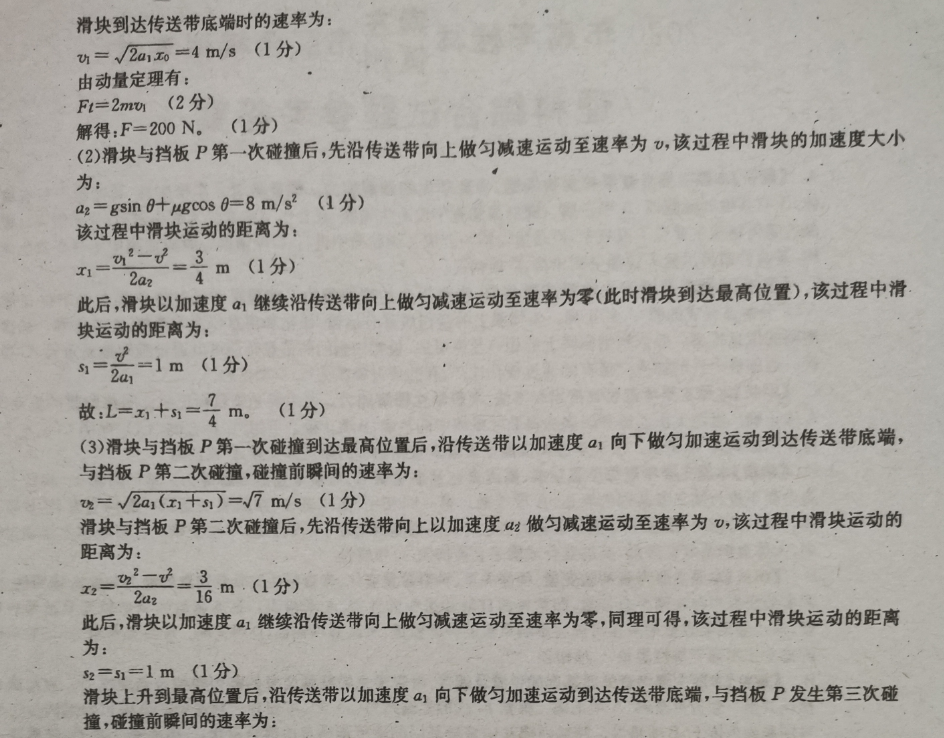 滑块到达传送带底端时的速率为:
v₁=√(2a₁x₀)=4 m/s (1分)
由动量定理有:
Ft=2mv₁ (2分)
解得:F=200 N。 (1分)
(2)滑块与挡板 P 第一次碰撞后,先沿传送带向上做匀减速运动至速率为 v,该过程中滑块的加速度大小
为:
a₂=gsin θ+μgcos θ=8 m/s² (1分)
该过程中滑块运动的距离为:
x₁=(v₁²-v²)/(2a₂)=3/4 m (1分)
此后,滑块以加速度 a₁ 继续沿传送带向上做匀减速运动至速率为零(此时滑块到达最高位置),该过程中滑
块运动的距离为:
s₁=v²/(2a₁)=1 m (1分)
故:L=x₁+s₁=7/4 m。 (1分)
(3)滑块与挡板 P 第一次碰撞到达最高位置后,沿传送带以加速度 a₁ 向下做匀加速运动到达传送带底端,
与挡板 P 第二次碰撞,碰撞前瞬间的速率为:
v₂=√(2a₁(x₁+s₁))=√7 m/s (1分)
滑块与挡板 P 第二次碰撞后,先沿传送带向上以加速度 a₂ 做匀减速运动至速率为 v,该过程中滑块运动的
距离为:
x₂=(v₂²-v²)/(2a₂)=3/16 m (1分)
此后,滑块以加速度 a₁ 继续沿传送带向上做匀减速运动至速率为零,同理可得,该过程中滑块运动的距离
为:
s₂=s₁=1 m (1分)
滑块上升到最高位置后,沿传送带以加速度 a₁ 向下做匀加速运动到达传送带底端,与挡板 P 发生第三次碰
撞,碰撞前瞬间的速率为: